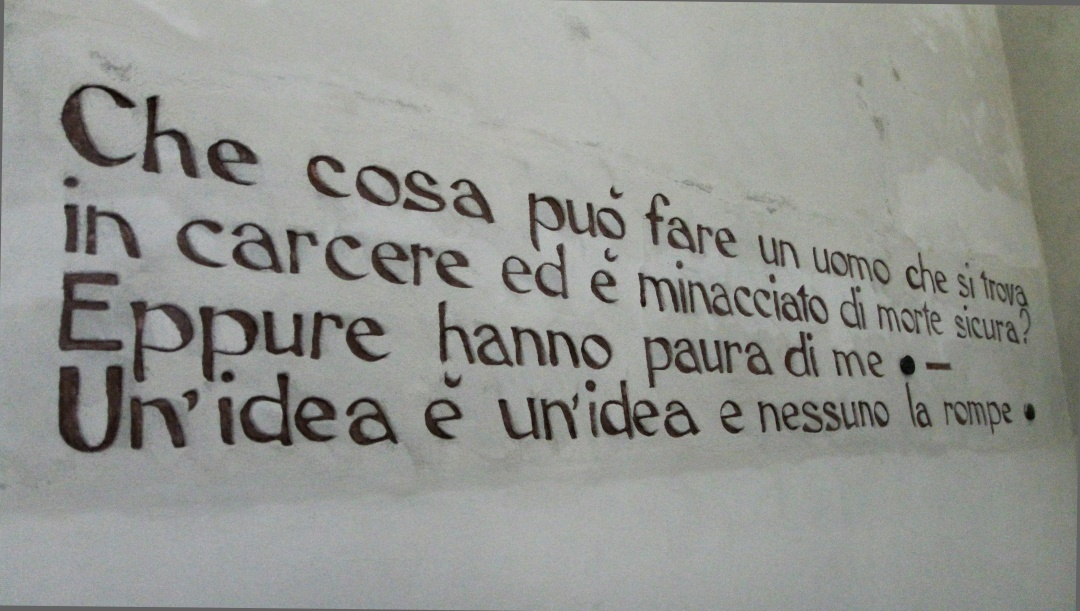 Che cosa può fare un uomo che si trova
in carcere ed è minacciato di morte sicura?
Eppure hanno paura di me. –
Un'idea è un'idea e nessuno la rompe.